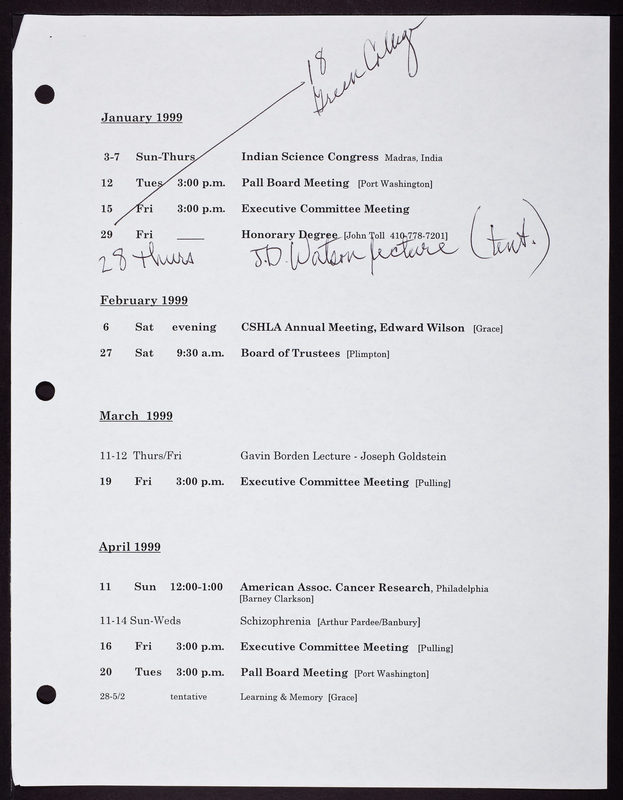 18
Green College
January 1999
3-7 Sun-Thurs Indian Science Congress Madras, India
12 Tues 3:00 p.m. Pall Board Meeting [Port Washington]
15 Fri 3:00 p.m. Executive Committee Meeting
29 Fri ____ Honorary Degree [John Toll 410-778-7201]
28 thurs J.D. Watson lecture (tent.)
February 1999
6 Sat evening CSHLA Annual Meeting, Edward Wilson [Grace]
27 Sat 9:30 a.m. Board of Trustees [Plimpton]
March 1999
11-12 Thurs/Fri Gavin Borden Lecture - Joseph Goldstein
19 Fri 3:00 p.m. Executive Committee Meeting [Pulling]
April 1999
11 Sun 12:00-1:00 American Assoc. Cancer Research, Philadelphia
[Barney Clarkson]
11-14 Sun-Weds Schizophrenia [Arthur Pardee/Banbury]
16 Fri 3:00 p.m. Executive Committee Meeting [Pulling]
20 Tues 3:00 p.m. Pall Board Meeting [Port Washington]
28-5/2 tentative Learning & Memory [Grace]